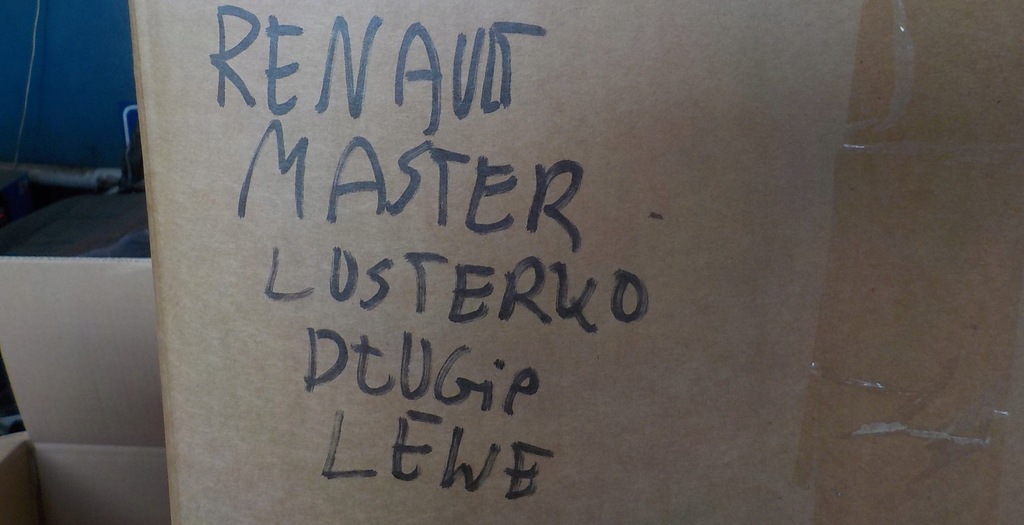 RENAULT
MASTER
LUSTERKO
DŁUGIE
LEWE